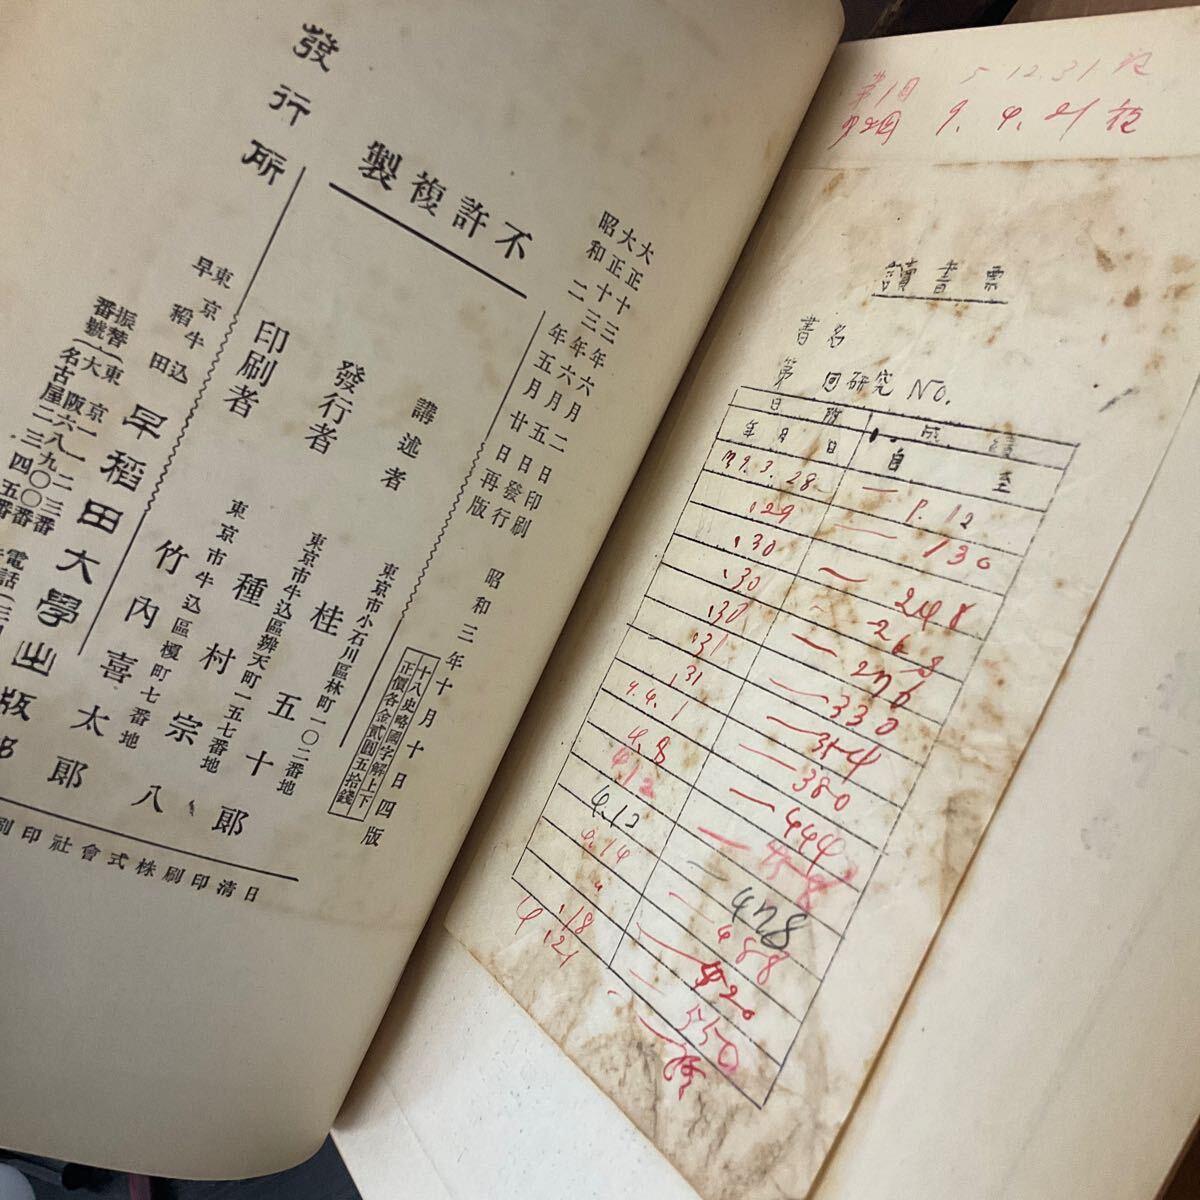 大正十三年六月二日印刷
大正十三年六月五日發行
昭和二年五月廿日再版
昭和三年十月十日四版
不許複製
十八史略國字解上下
正價各金貳圓五拾錢
講述者
東京市小石川區林町一〇二番地
桂五十郎
發行者
東京市牛込區辨天町一五七番地
種村宗八
印刷者
東京市牛込區榎町七番地
竹內喜太郎
發行所
東京牛込
早稻田
早稻田大學出版部
振替(東京一一二三番
大阪六八九〇〇番
番號
日淸印刷株式會社印刷
第1回 5.12.31
9.4.21
讀書票
書名
第 回研究 No.
日附 成績
年月日 自 至
9.3.28 — P.12
.29 — 130
.30 — 248
.30 — 268
.30 — 276
.31 — 330
.31 — 354
9.4.1 — 380
4.8 — 444
4.12 — 458
4.12 — 478
4.14 — 488
" — 520
.18 — 550
4.21 —